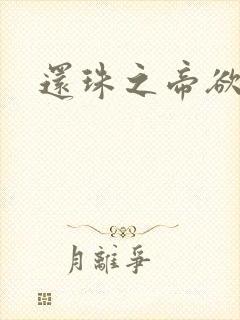 還珠之帝欲
月離爭